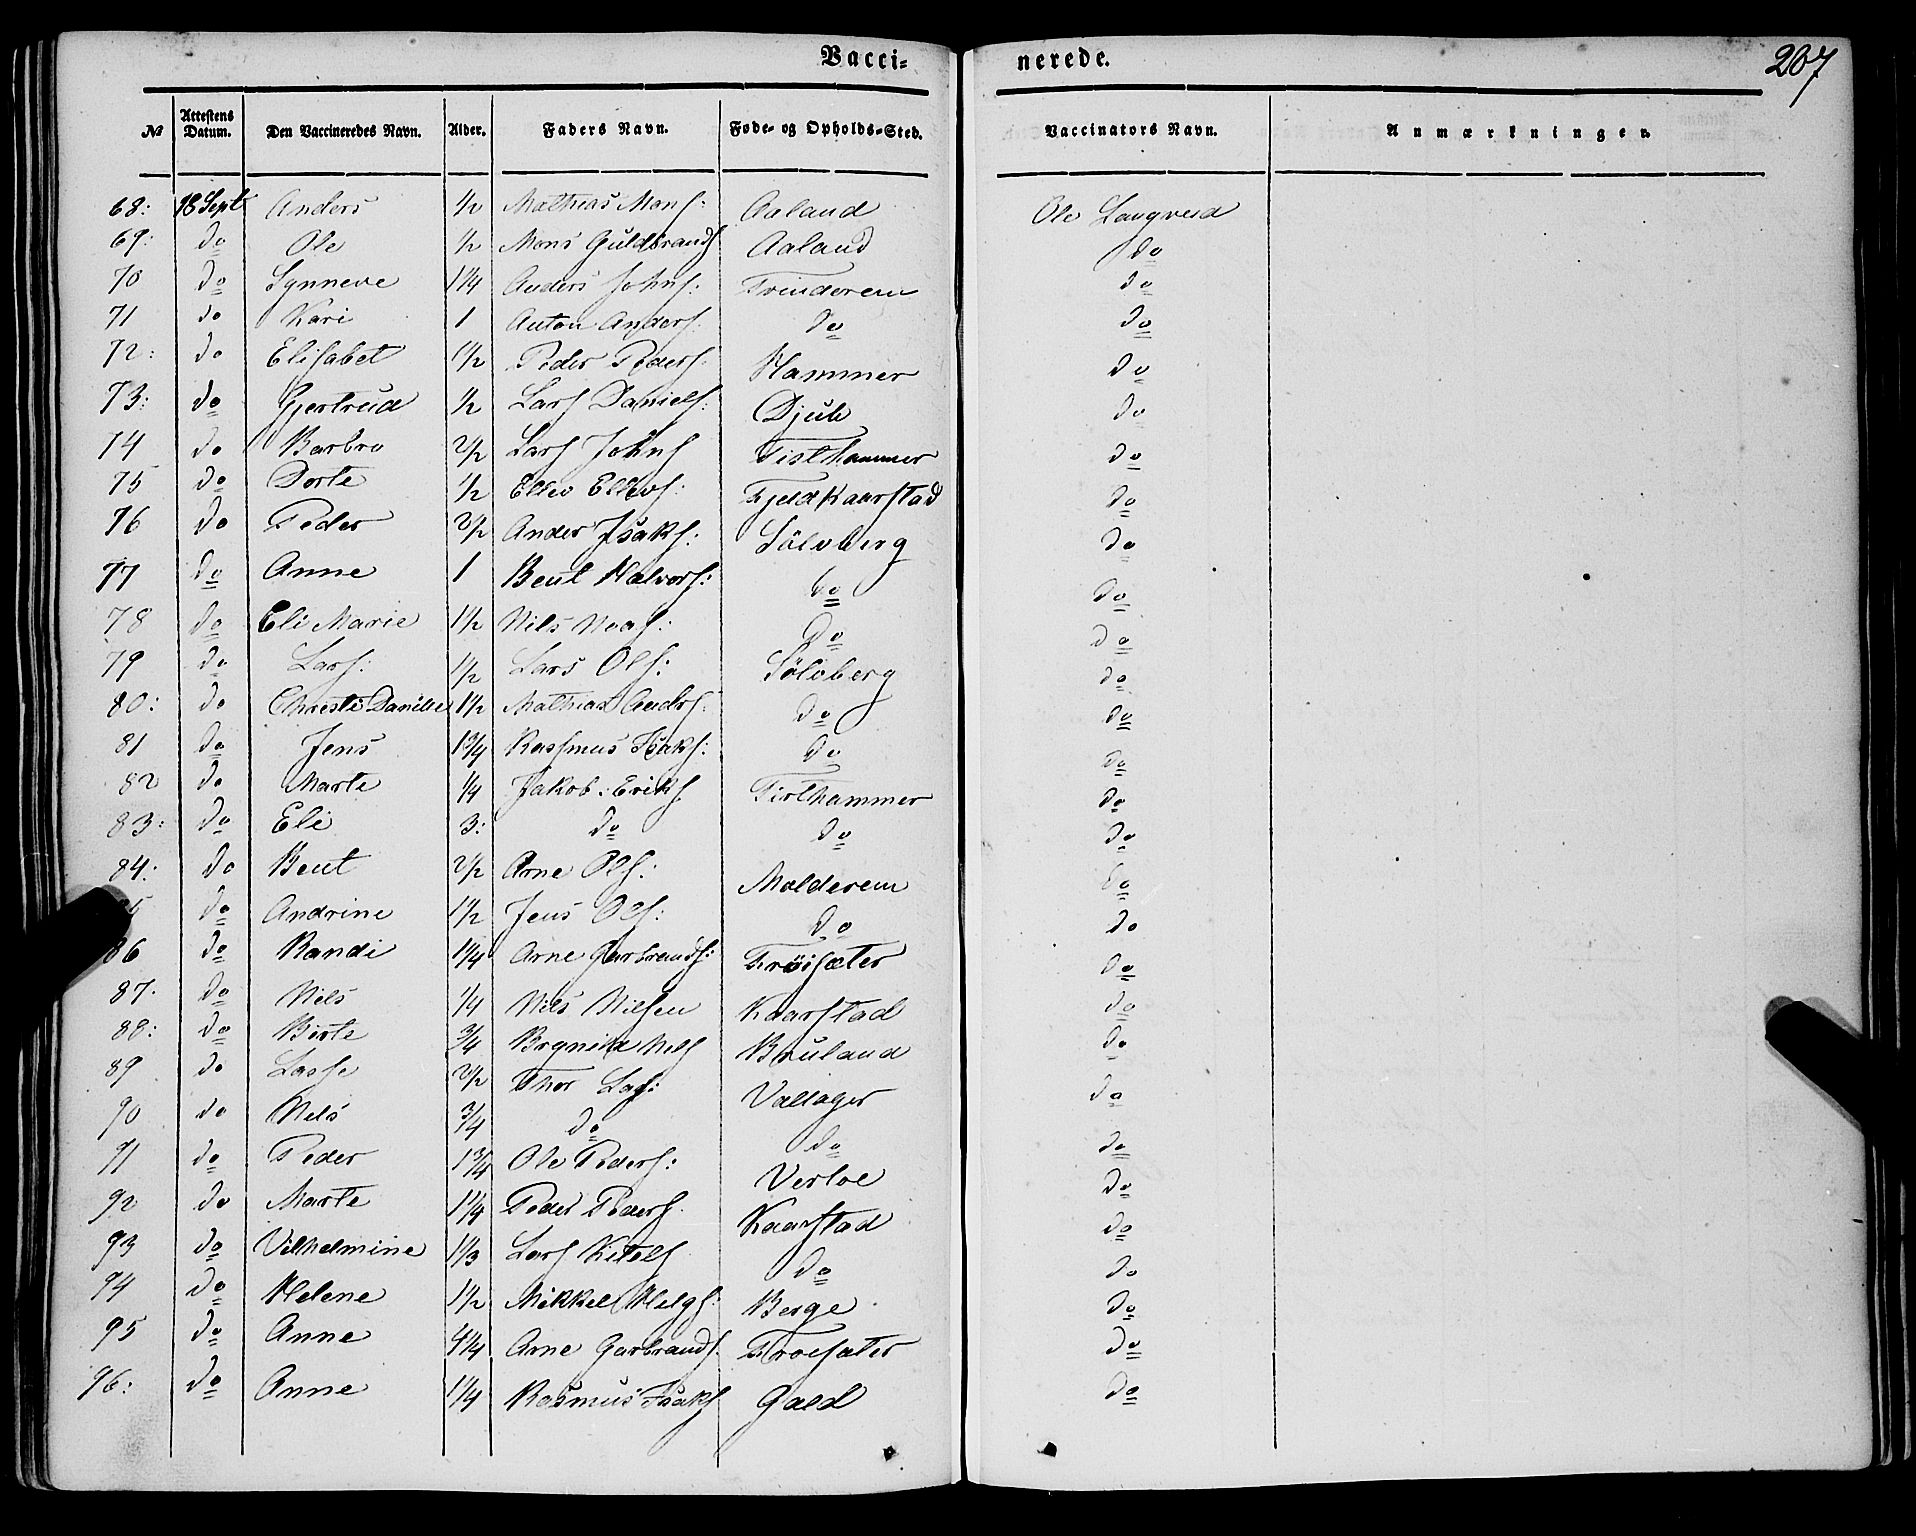 Vacci- nerede. 207
№ Attestens Datum. Den Vaccineredes Navn. Alder. Faders Navn. Føde- og Opholds-Sted. Vaccinators Navn. Anmærkninger.
68: 18 Sept Anders 1/2 Mathias Mons: Aaland Ole Langvesd
69: do Ole 1/2 Mons Guldbrands Aaland do
70 do Synneve 1 1/4 Anders Johns: Trinderem do
71 do Kari 1 Anton Anders: do do
72: do Elisabet 1 1/2 Peder Peders: Hammer do
73: do Gjertrud 1/2 Lars Daniels: Djub do
74 do Barbro 2 1/2 Lars Johns Tisthammer do
75 do Dorte 1/2 Ellev Ellevs: Fjeldkaarstad do
76 do Peder 2 1/2 Ander Isaks: Sölvberg do
77 do Anne 1 Bent Halvors: do do
78 do Eli Marie 1 1/2 Nils Noas: do do
79 do Lars: 1 1/2 Lars Ols: Sölvberg do
80: do Christi Danilie 1 1/2 Mathias Andrs: do do
81 do Jens 1 3/4 Rasmus Isaks: do do
82 do Marte 1/4 Jakob Eriks Tisthammer do
83: do Eli 3: do do do
84: do Bent 2 1/2 Arne Ols: Molderem do
85 do Andrine 1 1/2 Jens Ols: do do
86 do Randi 1 1/4 Arne Garbrands: Fröisæter do
87. do Nils 1/4 Nils Nilsen Kaarstad do
88: do Birte 3/4 Brynild Nils Bruland do
89 do Lasse 2 1/2 Thor Las: Vallager do
90 do Nils 3/4 do do do
91 do Peder 1 3/4 Ole Peders: Verloe do
92 do Marte 1 1/4 Peder Peders. Kaarstad do
93 do Vilhelmine 1 1/3 Lars Kitels do do
94 do Helene 1 1/2 Mikkel Helgs: Berge do
95 do Anne 4 1/4 Arne Garbrands: Froesæter do
96: do Anne 1 1/4 Rasmus Isaks Gald do